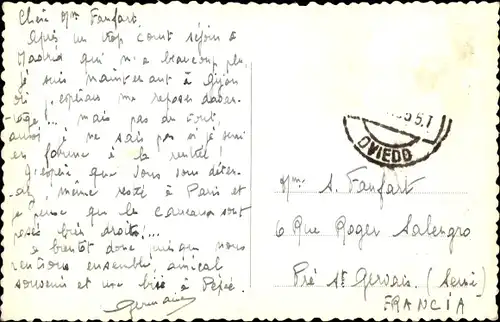 Chère Mme Fanfart.
Après un trop court séjour à
Madrid qui m'a beaucoup plu,
Je suis maintenant à Gijon
où j'espérais me reposer davan-
tage!... mais pas du tout,
aussi je ne sais pas si je serai
en forme à la rentrée!
J'espère que vous vous déten-
dez, même resté à Paris et
je pense que les
bien droits!...
à bientôt donc puisque nous
rentrons ensemble amical
souvenir et une bise à Pépée.
Germaine
OVIEDO
Mme S. Fanfart
6 Rue Roger Salengro
Pré St Gervais (Seine)
FRANCIA